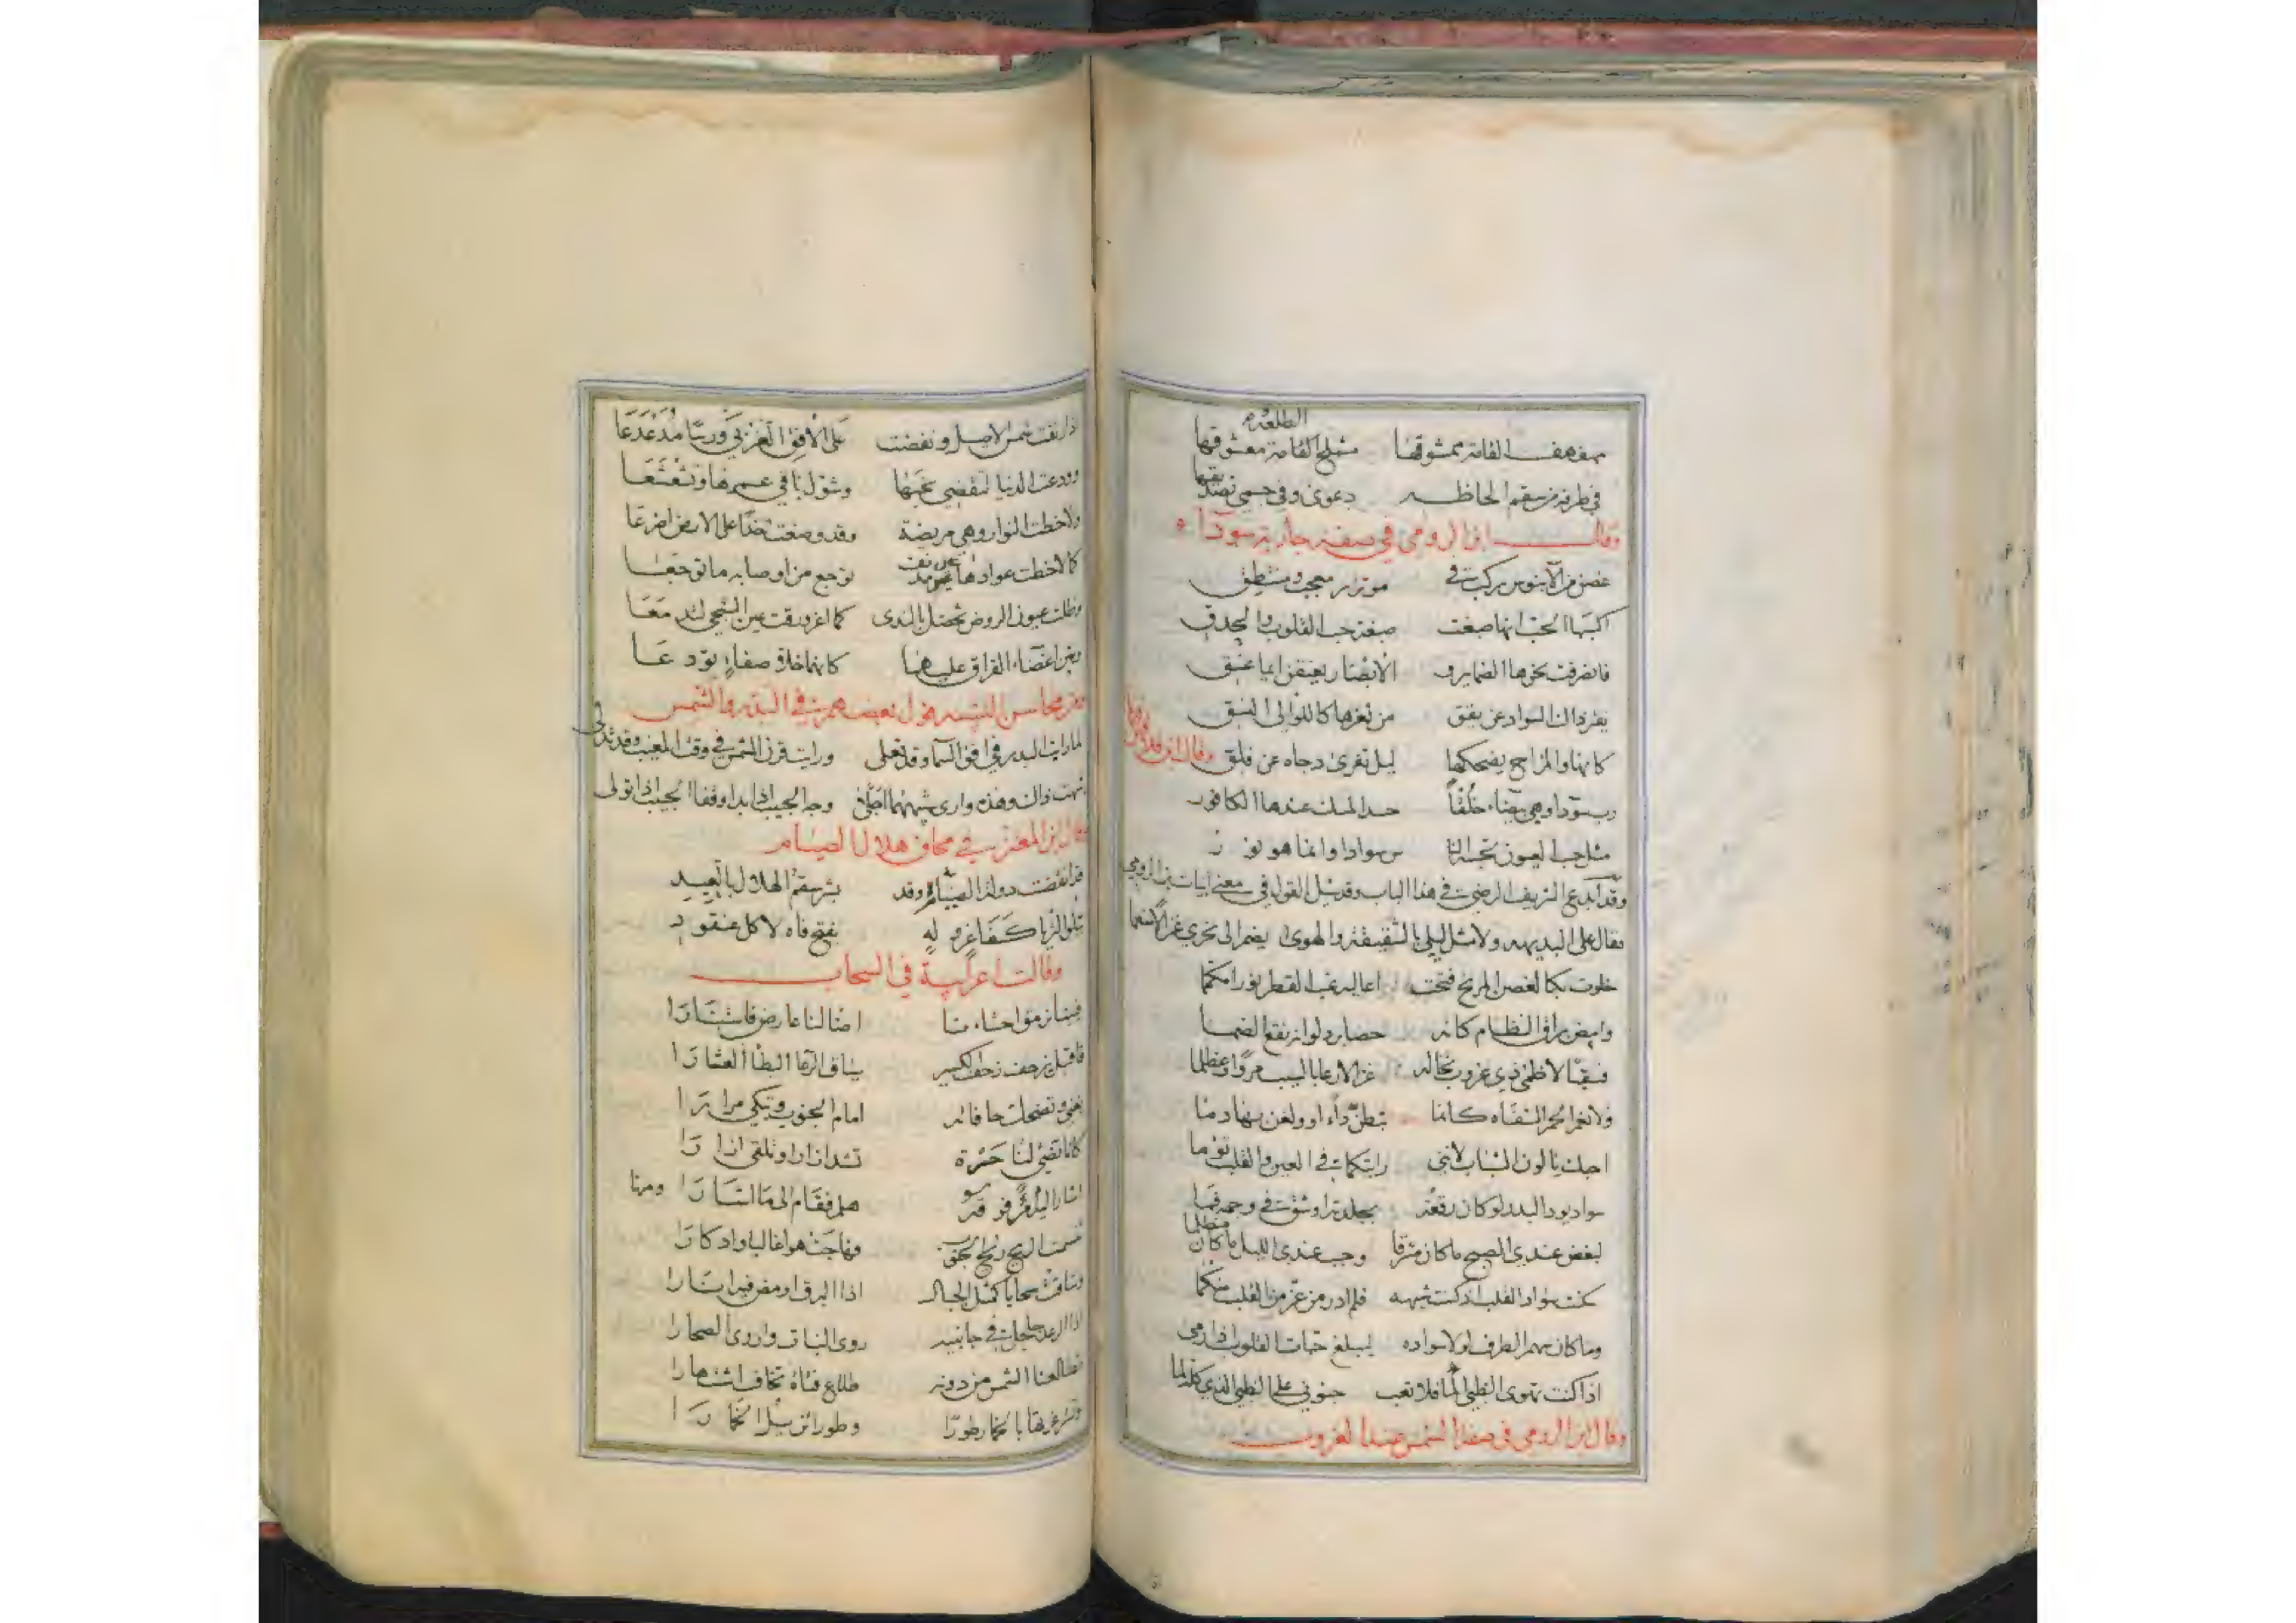 مهفهف القامة ممشوقها مستملح القامة معشوقها
الطلعة
في طرفه من سقم الحاظه دعوى وفي جسمي تصديقها
وقال ابن الرومي في صفة جارية سوداء
غصن من الآبنوس ركب في موتزر معجب ومنتطق
اكسبها الحب انها صبغت صبغة حب القلوب والحدق
فانصرفت نحوها الضماير و الأبصار يعنقن ايما عنق
يفتر ذاك السواد عن يقق من ثغرها كاللوالي النسق
كانها والمزاح يضحكها ليل تفرى دجاه عن فلق
وقال ابن
رب سودا وهي بيضاء خلقا حسد المسك عندها الكافور
مثل حب العيون تحسبه النا س سوادا وانما هو نور
وقد ابدع الشريف الرضي في هذا الباب وقد سئل القول في معنى ابيات ابن الرومي
فقال على البديهه ولا مثل ليلي بالشقيقة والهوى يضم الى نحري غزالا منعما
خلوت بكا لغصن المرنح فتحت اعاليه غب القطر نورا مكمما
وابيض براق النظام كانه حصا برد لو انه نقع الضما
فسقيا لاظمى ذي غروب تخاله غزالا رعا بالسيب مردا وعظلما
ولا ثغر الا محمر الشفاه كانما تبطن داء او ولغن بها دما
احبك يا لون الشباب لانني رايتكما في العين والقلب توما
سواد يود البدر لو كان رقعة بجلدته او شق في وجهه فما
لبغض عندي الصبح ما كان مشرقا وحبب عندي الليل ما كان مظلما
سكنت سواد القلب اذ كنت شبهه فلم ادر من عز من القلب منكما
وما كان سهم الطرف لولا سواده ليبلغ حبات القلوب اذا رمى
اذا كنت تهوى الظبي المى فلا تعب جنوني على الظبي الذي كله لما
وقال ابن الرومي في صفة الشمس عند الغروب
اذا رنقت شمس الاصيل ونفضت على الأفق الغربي ورسا مذعذعا
وودعت الدنيا لتقضي نحبها وشول باقي عمرها وتشعشعا
ولاحظت النوار وهي مريضة وقد وضعت خدا على الارض اضرعا
كما لاحظت عوادها عين مدنف توجع من اوصابه ما توجعا
وظلت عيون الروض تخضل بالندى كما اغرورقت عين الشجي لتدمعا
وبين اغضاء الفراق عليهما كانهما خلا صفاء تودعا
ومن محاسن التشبيه قول بعضهم في البدر والشمس
لما رايت البدر في افق السما وقد تعلى ورايت قرن الشمس في وقت المغيب وقد تدلى
شبهت ذاك وهذه وارى شبههما اجلا وجه الحبيب اذا بدا وقفا الحبيب اذا تولى
قال ابن المعتز في محاق هلال الصيام
قد انقضت دولة الصيام وقد بشر سقم الهلال بالعيد
يتلو الثريا كفاغر شره له يفتح فاه لاكل عنقود
وقالت اعرابية في السحاب
فبينا نرمق احشاءنا اضا لنا عارض فاستنارا
فاقبل يزحف زحف الكسير سياق الرعا البطاا لعشارا
تغني وتضحك حافاته امام الجنوب وتبكي مرارا
كانا تضي لنا حرة تشد ازارا وتلقي ازارا
اشار اليه مر فوقه هلم فقام الى ما اشارا ومنها
تنسمت الريح ريح الجنوب فهاجت هوا غالبا وادكارا
وساقت سحابا كمثل الجبال اذا البرق اومض فيه انارا
اذا الرعد جلجل في جانبيه روى النبات واروى الصحارا
تطالعنا الشمس من دونه طلاع فتاة تخاف اشتهارا
تقنعها بالخمار طورا وطورا تزيل الخمارا